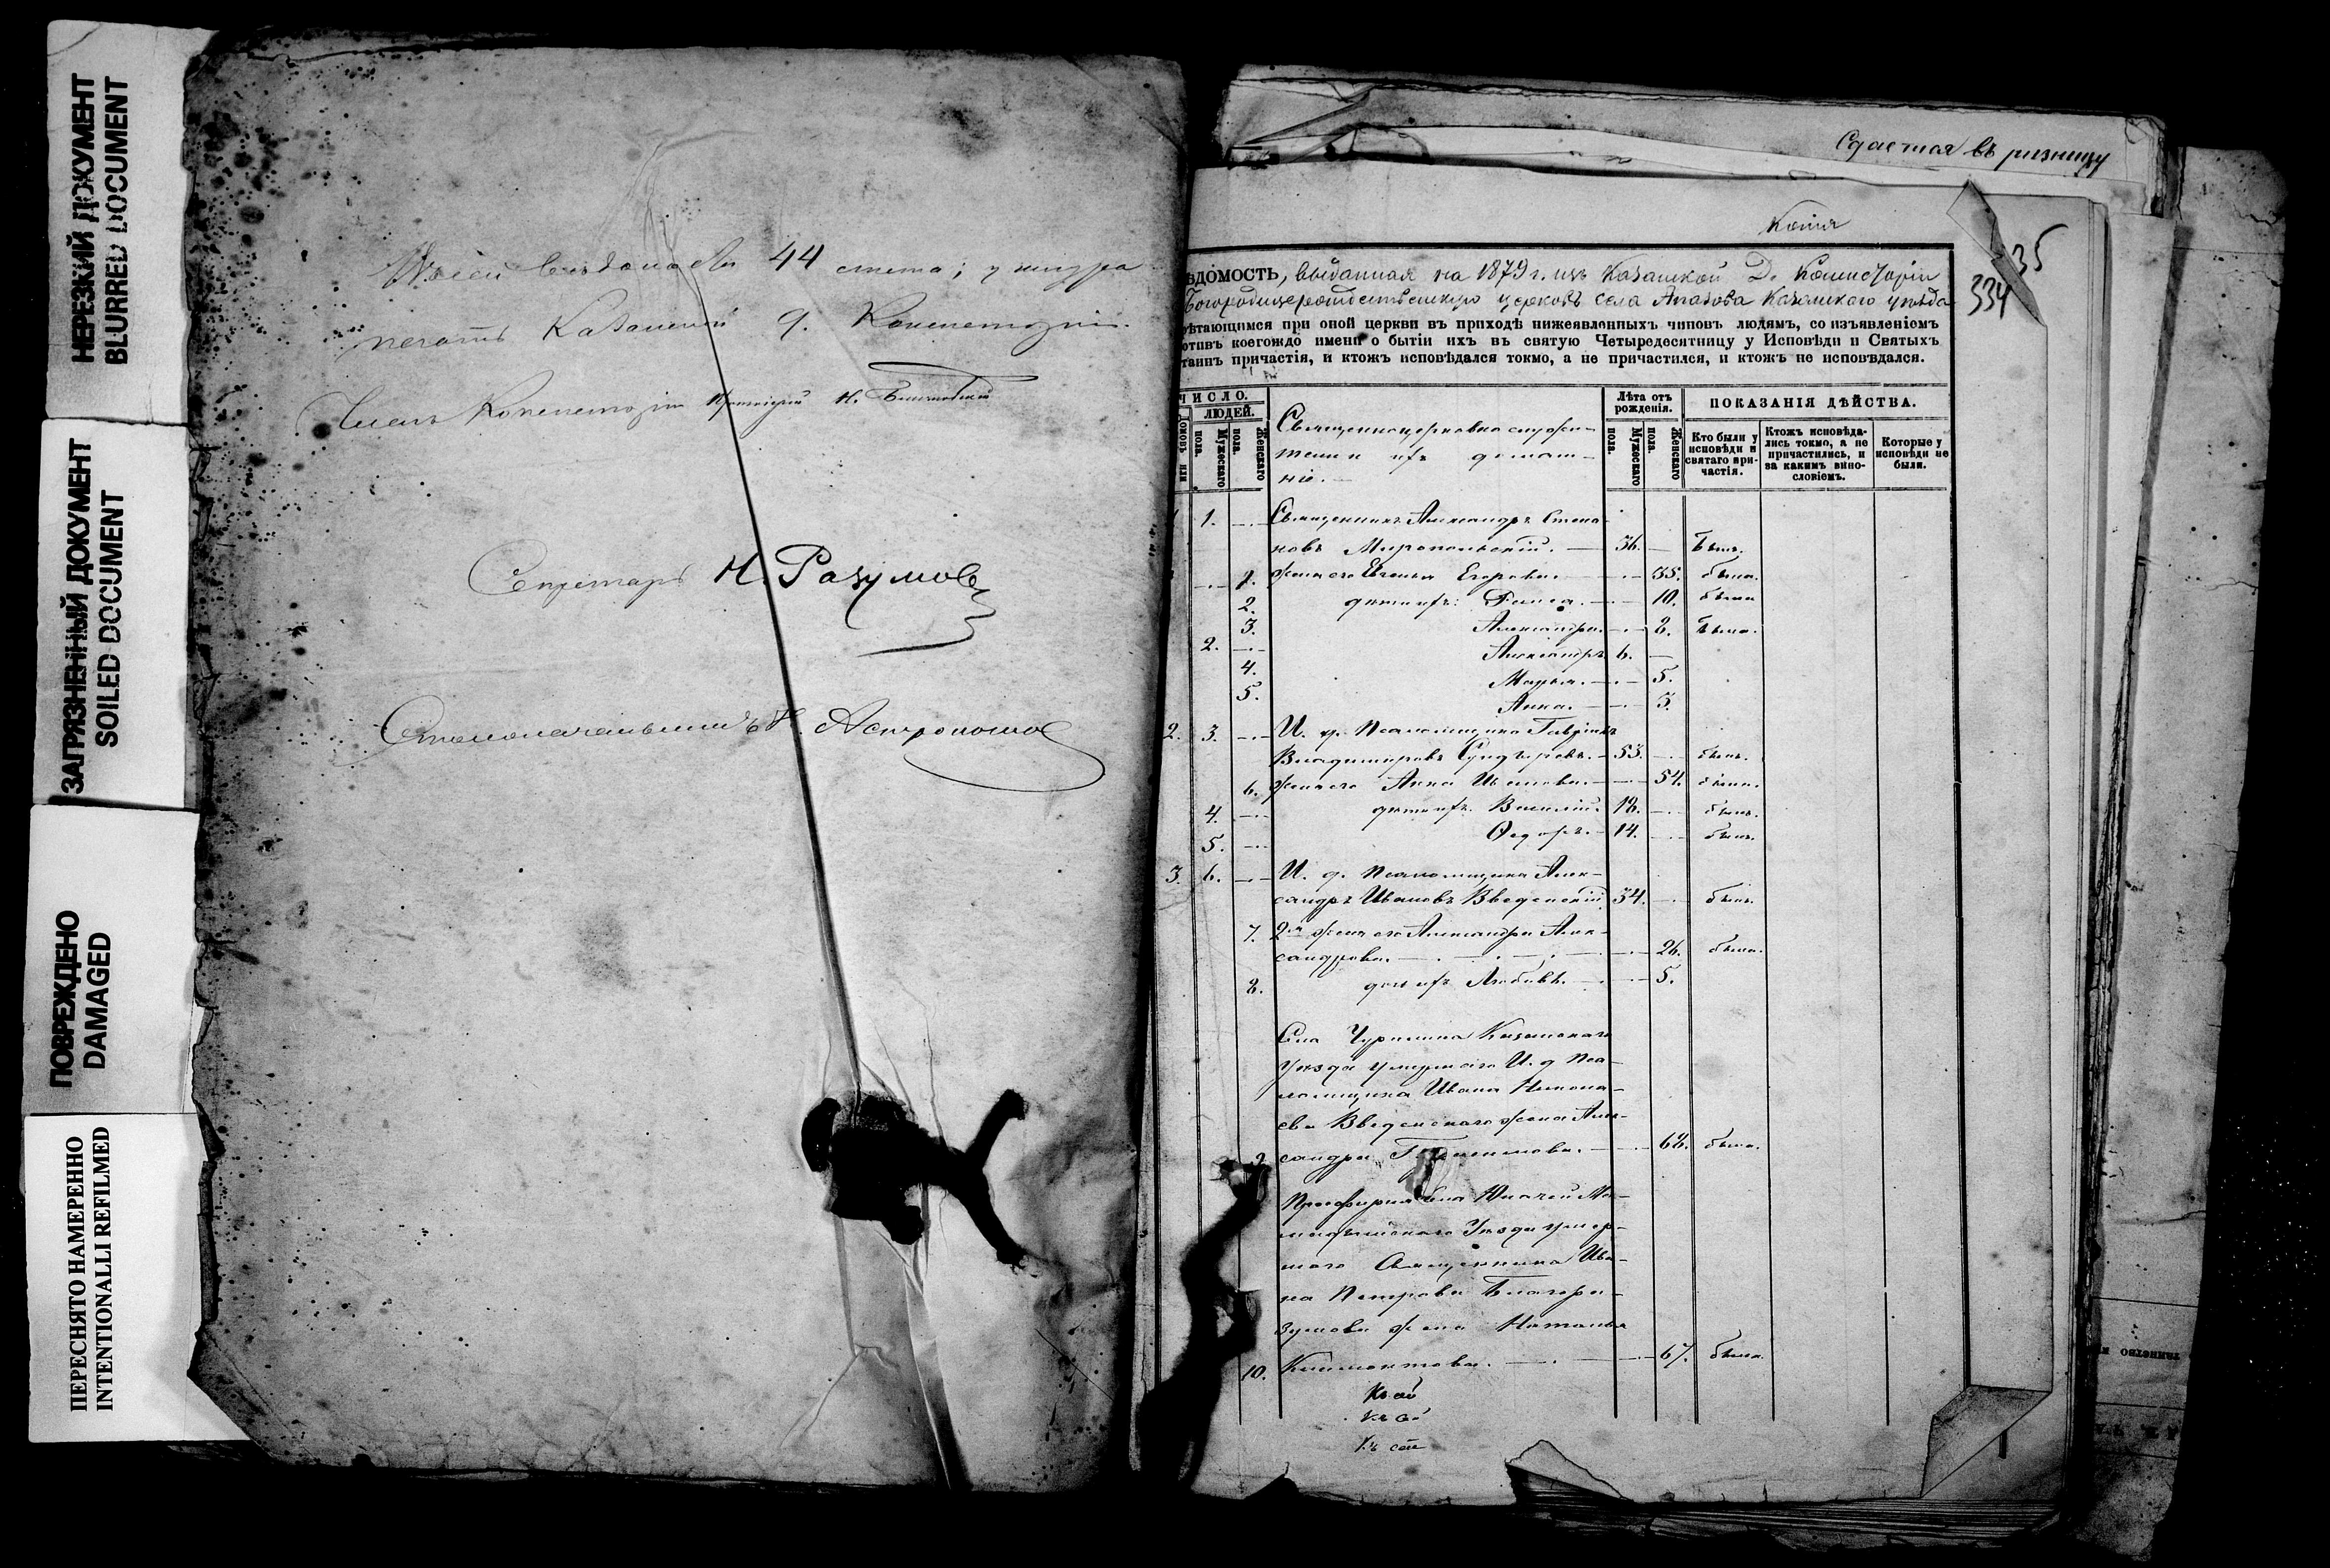 НЕРЕЗКИЙ ДОКУМЕНТ
BLURRED DOCUMENT
ЗАГРЯЗНЕННЫЙ ДОКУМЕНТ
SOILED DOCUMENT
ПОВРЕЖДЕНО
DAMAGED
ПЕРЕСНЯТО НАМЕРЕННО
INTENTIONALLI REFILMED
44
печать Казанской Д. Консисторіи.
Членъ Консисторіи Протоіерей
Секретарь Н. Разумов
Столоначальникъ Н. Астрономов
Сдается въ ризницу
Копія
335
334
ѢДОМОСТЬ, выданная на 1879 г. изъ Казанской Д. Консисторіи
Богородицерождественскую церковь села Апазова Казанскаго уѣзда
ѣтающимся при оной церкви въ приходѣ нижеявленныхъ чиновъ людямъ, со изъявленіемъ
отивъ коегождо имени о бытіи ихъ въ святую Четыредесятницу у Исповѣди и Святыхъ
таинъ причастія, и ктожъ исповѣдался токмо, а не причастился, и ктожъ не исповѣдался.
ЧИСЛО.
ЛЮДЕЙ.
Мужескаго пола.
Женскаго пола.
Священноцерковнослужи-
тели и ихъ домаш-
ніе.
Лѣта отъ рожденія.
Мужескаго пола.
Женскаго пола.
ПОКАЗАНІЯ ДѢЙСТВА.
Кто были у исповѣди и святаго при- частія.
Ктожъ исповѣда- лись токмо, а не причастились, и за какимъ вино- словіемъ.
Которые у исповѣди не были.
1. Священникъ Александръ Степа-
новъ Миропольскій. 36. Былъ.
1. жена его Евгенія Егорова. 35. была.
2. дѣти ихъ: 10. была
3. Александра. 8. была.
2. Александръ 6.
4. Марья. 5.
5. Анна. 3.
2. 3. И. д. Псаломщика Гавріилъ
Владиміровъ 53. былъ.
6. жена его Анна Иванова. 54. была.
4. дѣти ихъ: Василій. 18. былъ.
5. Ѳедоръ. 14. былъ.
3. 6. И. д. Псаломщика Алек-
сандръ Ивановъ Введенскій 34. былъ.
7. 2я жена его Александра Алек-
сандрова. 26. была.
8. дочь ихъ Любовь. 5.
Села Чурилина Казанскаго
Уѣзда умершаго И. д. Пса-
ломщика Ивана Никола-
ева Введенскаго жена Алек-
9. сандра 68. была.
Просфирня села Юлачей Ма-
мадышскаго Уѣзда умер-
шаго Священника Ива-
на Петрова Благора-
зумова жена Наталья
10. Климентова. 67. была.